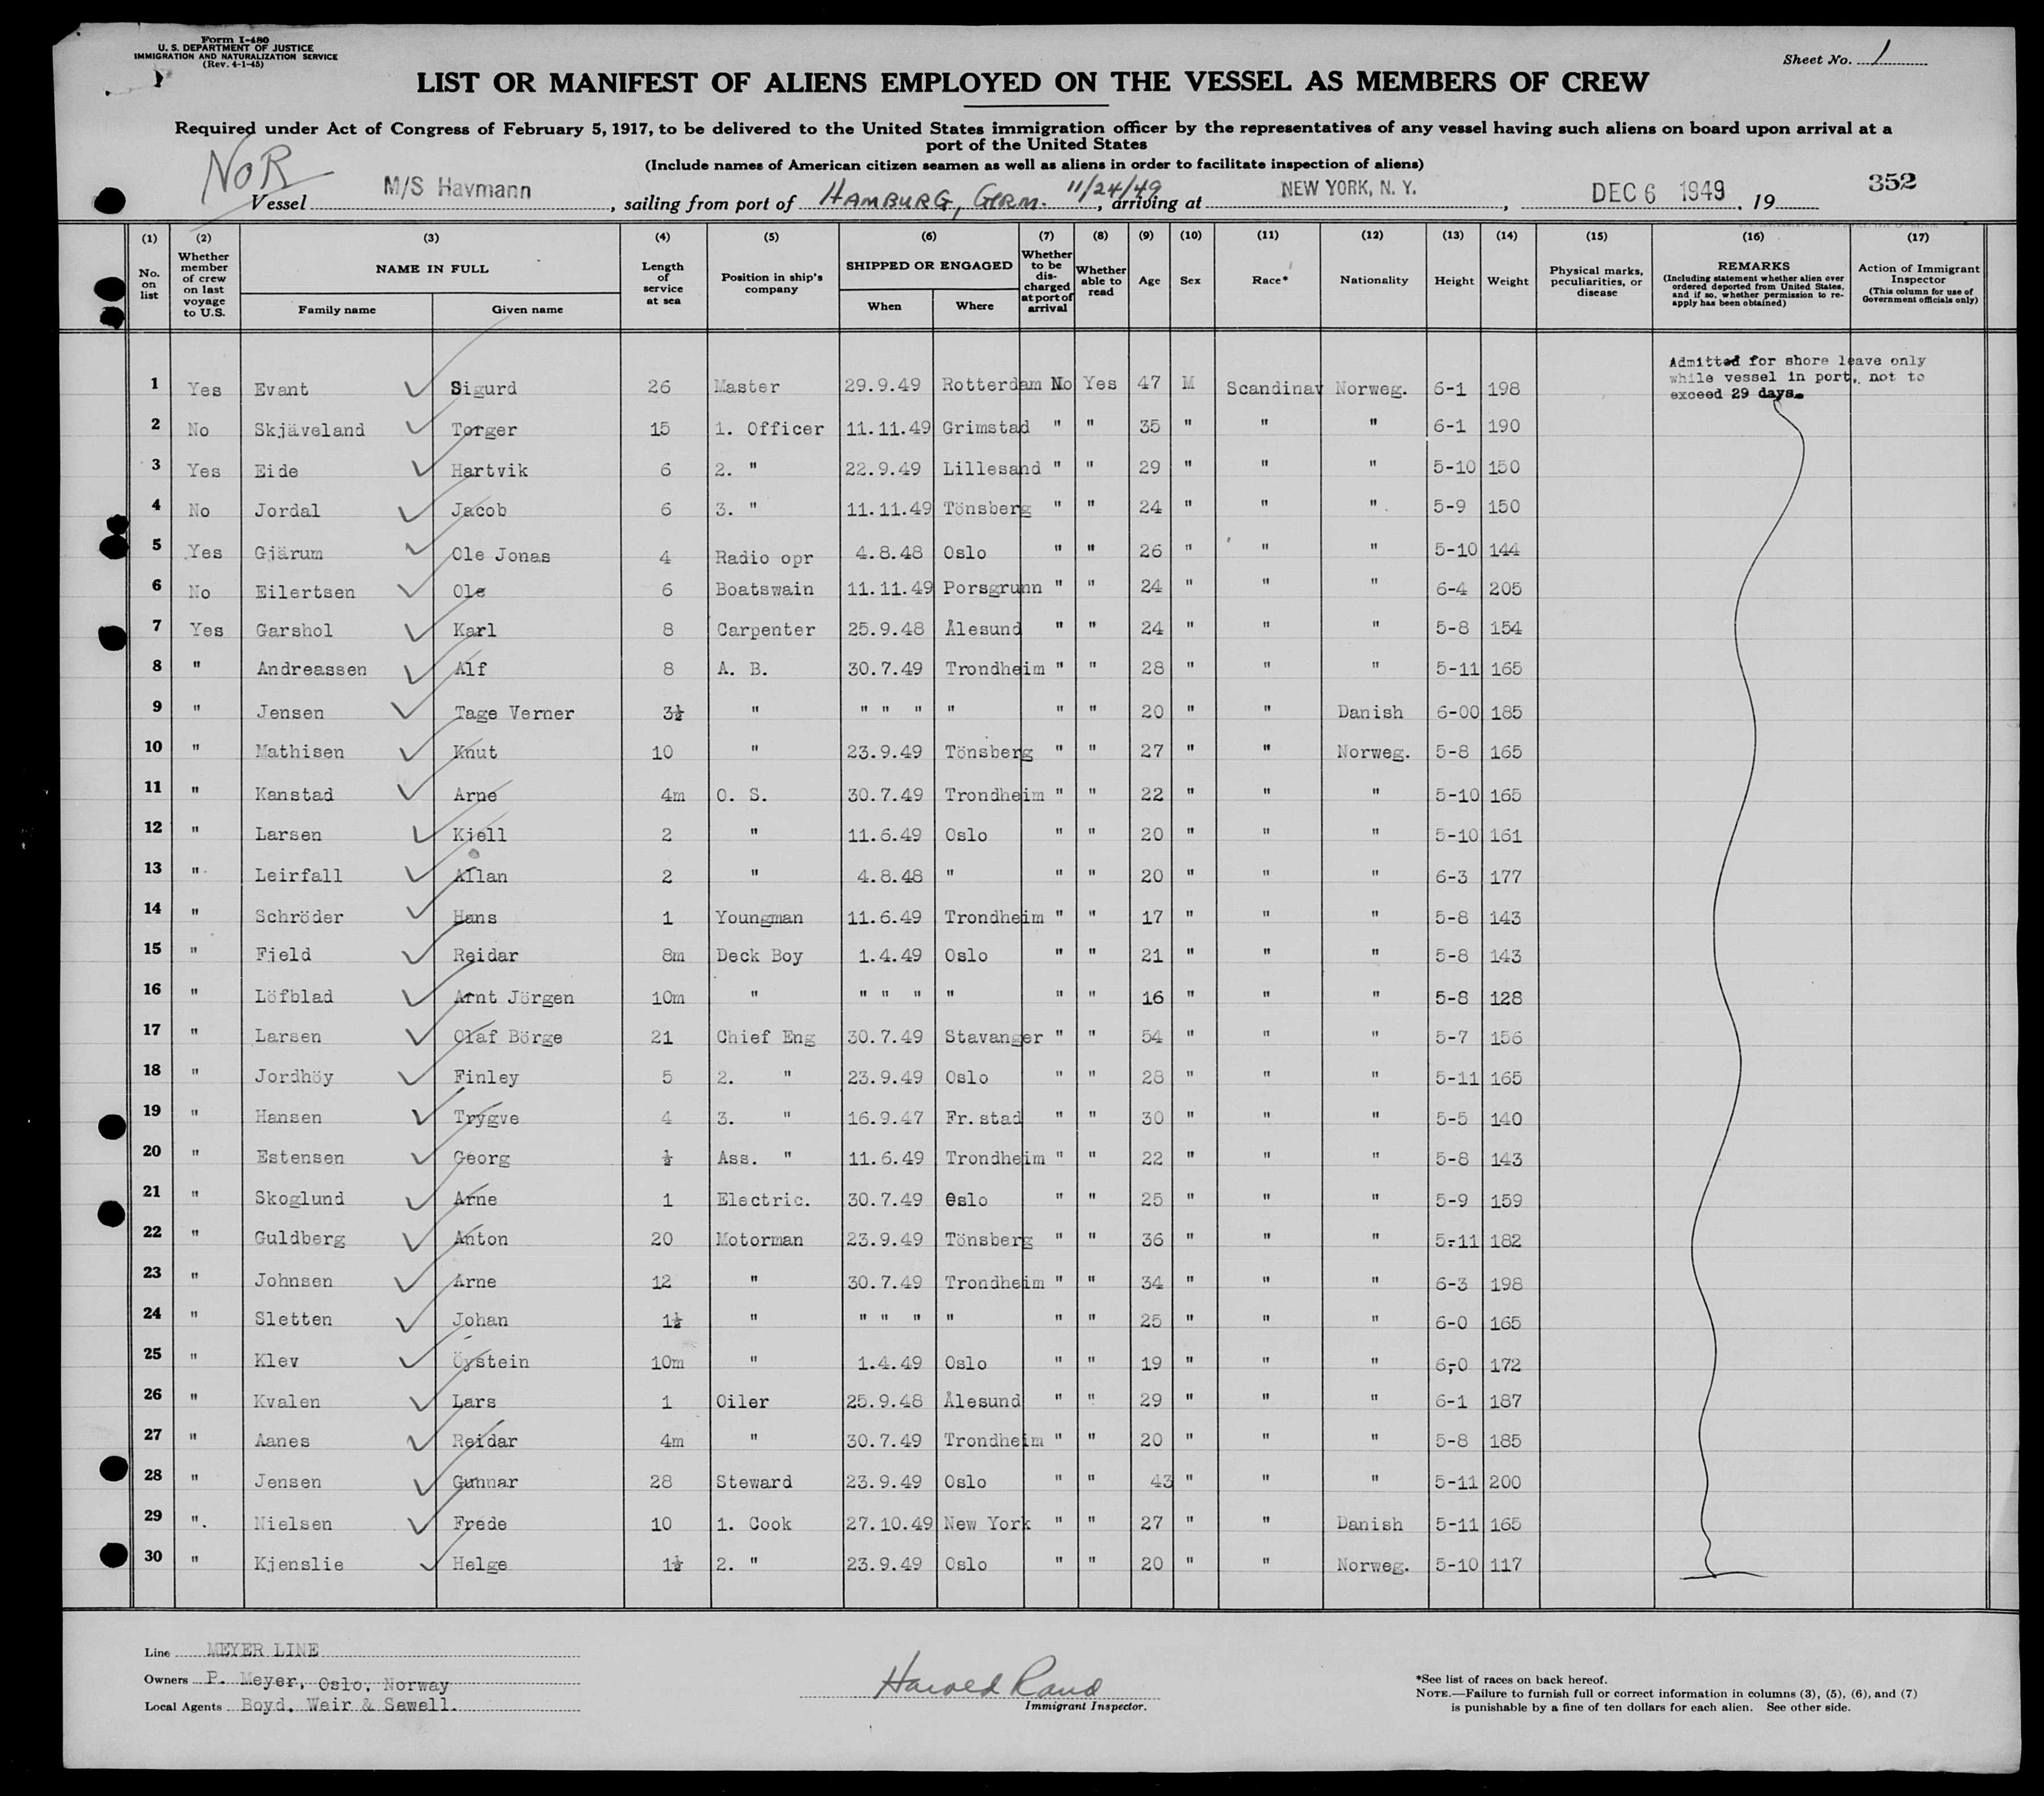 Form I-480
U. S. DEPARTMENT OF JUSTICE
IMMIGRATION AND NATURALIZATION SERVICE
(Rev. 4-1-45)
Sheet No. 1
LIST OR MANIFEST OF ALIENS EMPLOYED ON THE VESSEL AS MEMBERS OF CREW
Required under Act of Congress of February 5, 1917, to be delivered to the United States immigration officer by the representatives of any vessel having such aliens on board upon arrival at a
port of the United States
(Include names of American citizen seamen as well as aliens in order to facilitate inspection of aliens)
NOR
352
Vessel M/S Havmann, sailing from port of HAMBURG, GERM. 11/24/49, arriving at NEW YORK, N. Y., DEC 6 1949, 19
(1) No. on list (2) Whether member of crew on last voyage to U.S. (3) NAME IN FULL Family name Given name (4) Length of service at sea (5) Position in ship's company (6) SHIPPED OR ENGAGED When Where (7) Whether to be discharged at port of arrival (8) Whether able to read (9) Age (10) Sex (11) Race* (12) Nationality (13) Height (14) Weight (15) Physical marks, peculiarities, or disease (16) REMARKS (Including statement whether alien over ordered deported from United States, and if so, whether permission to re-apply has been obtained) (17) Action of Immigrant Inspector (This column for use of Government officials only)
Admitted for shore leave only
while vessel in port, not to
exceed 29 days.
1 Yes Evant Sigurd 26 Master 29.9.49 Rotterdam No Yes 47 M Scandinav Norweg. 6-1 198
2 No Skjäveland Torger 15 1. Officer 11.11.49 Grimstad " " 35 " " " 6-1 190
3 Yes Eide Hartvik 6 2. " 22.9.49 Lillesand " " 29 " " " 5-10 150
4 No Jordal Jacob 6 3. " 11.11.49 Tönsberg " " 24 " " " 5-9 150
5 Yes Gjärum Ole Jonas 4 Radio opr 4.8.48 Oslo " " 26 " " " 5-10 144
6 No Eilertsen Ole 6 Boatswain 11.11.49 Porsgrunn " " 24 " " " 6-4 205
7 Yes Garshol Karl 8 Carpenter 25.9.48 Ålesund " " 24 " " " 5-8 154
8 " Andreassen Alf 8 A. B. 30.7.49 Trondheim " " 28 " " " 5-11 165
9 " Jensen Tage Verner 3½ " " " " " " " 20 " " Danish 6-00 185
10 " Mathisen Knut 10 " 23.9.49 Tönsberg " " 27 " " Norweg. 5-8 165
11 " Kanstad Arne 4m O. S. 30.7.49 Trondheim " " 22 " " " 5-10 165
12 " Larsen Kjell 2 " 11.6.49 Oslo " " 20 " " " 5-10 161
13 " Leirfall Allan 2 " 4.8.48 " " " 20 " " " 6-3 177
14 " Schröder Hans 1 Youngman 11.6.49 Trondheim " " 17 " " " 5-8 143
15 " Fjeld Reidar 8m Deck Boy 1.4.49 Oslo " " 21 " " " 5-8 143
16 " Löfblad Arnt Jörgen 10m " " " " " " " 16 " " " 5-8 128
17 " Larsen Olaf Börge 21 Chief Eng 30.7.49 Stavanger " " 54 " " " 5-7 156
18 " Jordhöy Finley 5 2. " 23.9.49 Oslo " " 28 " " " 5-11 165
19 " Hansen Trygve 4 3. " 16.9.47 Fr.stad " " 30 " " " 5-5 140
20 " Estensen Georg ½ Ass. " 11.6.49 Trondheim " " 22 " " " 5-8 143
21 " Skoglund Arne 1 Electric. 30.7.49 Oslo " " 25 " " " 5-9 159
22 " Guldberg Anton 20 Motorman 23.9.49 Tönsberg " " 36 " " " 5-11 182
23 " Johnsen Arne 12 " 30.7.49 Trondheim " " 34 " " " 6-3 198
24 " Sletten Johan 1½ " " " " " " " 25 " " " 6-0 165
25 " Klev Öystein 10m " 1.4.49 Oslo " " 19 " " " 6-0 172
26 " Kvalen Lars 1 Oiler 25.9.48 Ålesund " " 29 " " " 6-1 187
27 " Aanes Reidar 4m " 30.7.49 Trondheim " " 20 " " " 5-8 185
28 " Jensen Gunnar 28 Steward 23.9.49 Oslo " " 43 " " " 5-11 200
29 " Nielsen Frede 10 1. Cook 27.10.49 New York " " 27 " " Danish 5-11 165
30 " Kjenslie Helge 1½ 2. " 23.9.49 Oslo " " 20 " " Norweg. 5-10 117
Line MEYER LINE
Owners P. Meyer, Oslo, Norway
Local Agents Boyd, Weir & Sewell.
Harold Rand
Immigrant Inspector.
*See list of races on back hereof.
NOTE.—Failure to furnish full or correct information in columns (3), (5), (6), and (7)
is punishable by a fine of ten dollars for each alien. See other side.